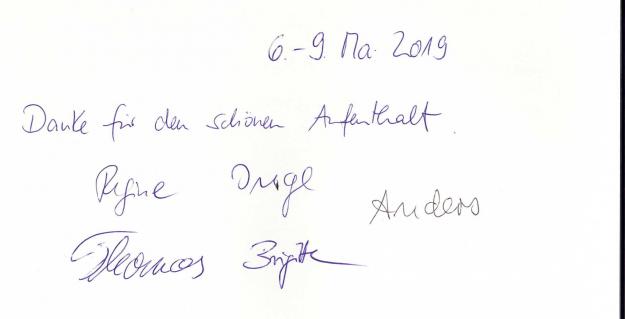 6.-9. Ma. 2019
Danke für den schönen Aufenthalt.
Regine
Anders
Thomas Brigitte